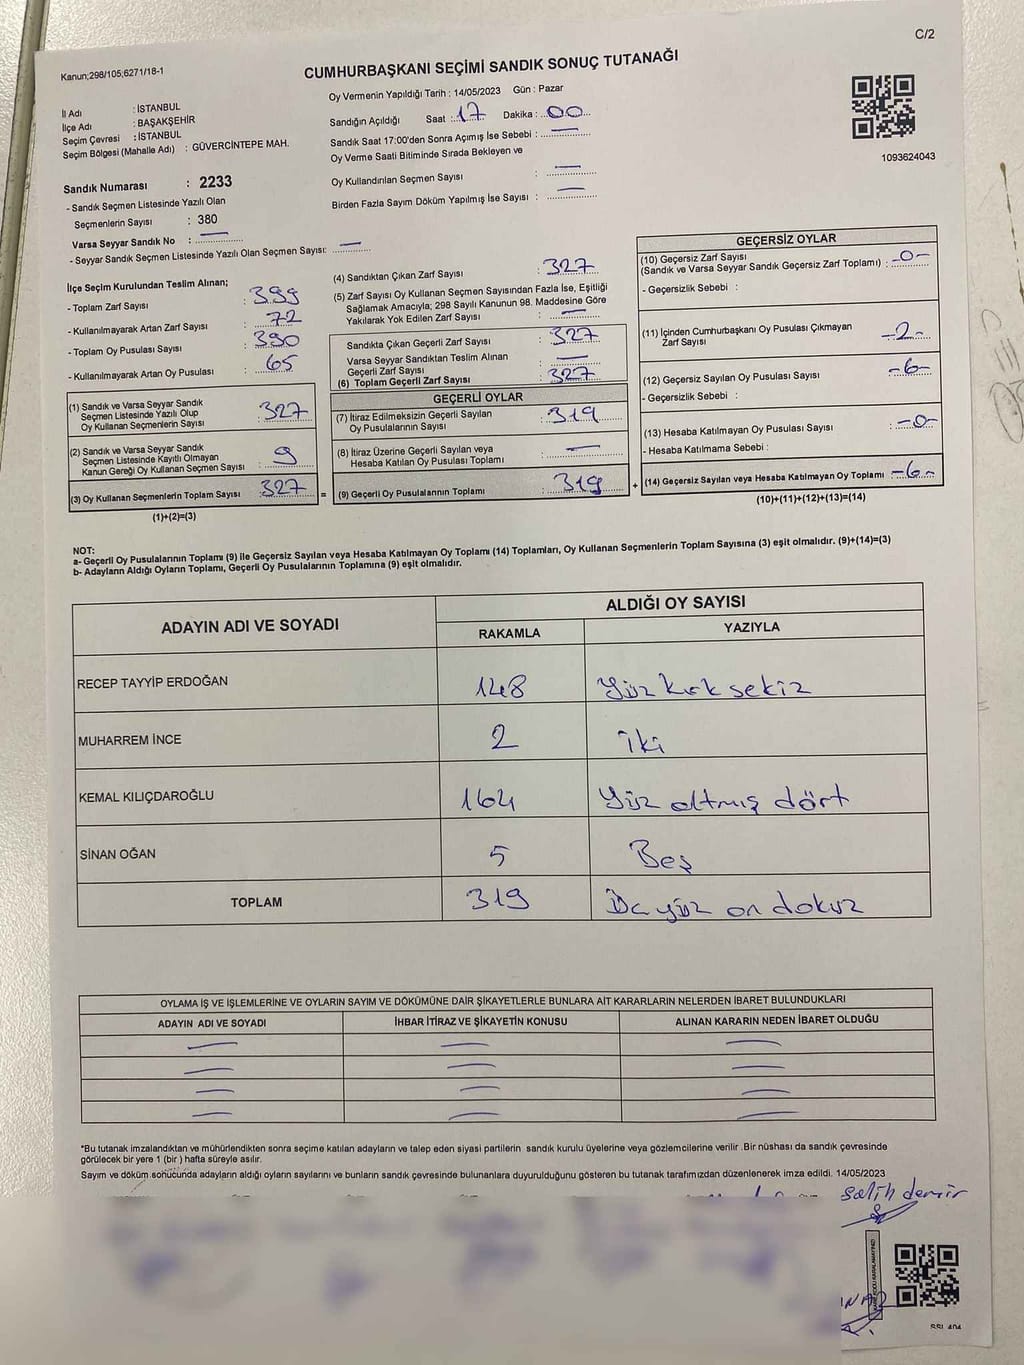 C/2
Kanun;298/105;6271/18-1
CUMHURBAŞKANI SEÇİMİ SANDIK SONUÇ TUTANAĞI
İl Adı : İSTANBUL
İlçe Adı : BAŞAKŞEHİR
Seçim Çevresi : İSTANBUL
Seçim Bölgesi (Mahalle Adı) : GÜVERCİNTEPE MAH.
Oy Vermenin Yapıldığı Tarih : 14/05/2023 Gün : Pazar
Sandığın Açıldığı Saat : 17 Dakika : 00
Sandık Saat 17:00'den Sonra Açımış İse Sebebi : —
Oy Verme Saati Bitiminde Sırada Bekleyen ve
Oy Kullandırılan Seçmen Sayısı : —
Birden Fazla Sayım Döküm Yapılmış İse Sayısı : —
1093624043
Sandık Numarası : 2233
- Sandık Seçmen Listesinde Yazılı Olan
Seçmenlerin Sayısı : 380
Varsa Seyyar Sandık No : —
- Seyyar Sandık Seçmen Listesinde Yazılı Olan Seçmen Sayısı: —
İlçe Seçim Kurulundan Teslim Alınan;
- Toplam Zarf Sayısı : 399
- Kullanılmayarak Artan Zarf Sayısı : 72
- Toplam Oy Pusulası Sayısı : 390
- Kullanılmayarak Artan Oy Pusulası : 65
(1) Sandık ve Varsa Seyyar Sandık
Seçmen Listesinde Yazılı Olup
Oy Kullanan Seçmenlerin Sayısı : 327
(2) Sandık ve Varsa Seyyar Sandık
Seçmen Listesinde Kayıtlı Olmayan
Kanun Gereği Oy Kullanan Seçmen Sayısı : 9
(3) Oy Kullanan Seçmenlerin Toplam Sayısı : 327 =
(1)+(2)=(3)
(4) Sandıktan Çıkan Zarf Sayısı : 327
(5) Zarf Sayısı Oy Kullanan Seçmen Sayısından Fazla İse, Eşitliği
Sağlamak Amacıyla; 298 Sayılı Kanunun 98. Maddesine Göre
Yakılarak Yok Edilen Zarf Sayısı : —
Sandıkta Çıkan Geçerli Zarf Sayısı : 327
Varsa Seyyar Sandıktan Teslim Alınan
Geçerli Zarf Sayısı : —
(6) Toplam Geçerli Zarf Sayısı : 327
GEÇERLİ OYLAR
(7) İtiraz Edilmeksizin Geçerli Sayılan
Oy Pusulalarının Sayısı : 319
(8) İtiraz Üzerine Geçerli Sayılan veya
Hesaba Katılan Oy Pusulası Toplamı : —
(9) Geçerli Oy Pusulalarının Toplamı : 319 +
GEÇERSİZ OYLAR
(10) Geçersiz Zarf Sayısı
(Sandık ve Varsa Seyyar Sandık Geçersiz Zarf Toplamı) : -0-
- Geçersizlik Sebebi :
(11) İçinden Cumhurbaşkanı Oy Pusulası Çıkmayan
Zarf Sayısı : -2-
(12) Geçersiz Sayılan Oy Pusulası Sayısı : -6-
- Geçersizlik Sebebi :
(13) Hesaba Katılmayan Oy Pusulası Sayısı : -0-
- Hesaba Katılmama Sebebi :
(14) Geçersiz Sayılan veya Hesaba Katılmayan Oy Toplamı : -6-
(10)+(11)+(12)+(13)=(14)
NOT:
a- Geçerli Oy Pusulalarının Toplamı (9) ile Geçersiz Sayılan veya Hesaba Katılmayan Oy Toplamı (14) Toplamları, Oy Kullanan Seçmenlerin Toplam Sayısına (3) eşit olmalıdır. (9)+(14)=(3)
b- Adayların Aldığı Oyların Toplamı, Geçerli Oy Pusulalarının Toplamına (9) eşit olmalıdır.
ADAYIN ADI VE SOYADI ALDIĞI OY SAYISI
RAKAMLA YAZIYLA
RECEP TAYYİP ERDOĞAN 148 Yüz kırk sekiz
MUHARREM İNCE 2 İki
KEMAL KILIÇDAROĞLU 164 Yüz altmış dört
SİNAN OĞAN 5 Beş
TOPLAM 319 Üç yüz on dokuz
OYLAMA İŞ VE İŞLEMLERİNE VE OYLARIN SAYIM VE DÖKÜMÜNE DAİR ŞİKAYETLERLE BUNLARA AİT KARARLARIN NELERDEN İBARET BULUNDUKLARI
ADAYIN ADI VE SOYADI İHBAR İTİRAZ VE ŞİKAYETİN KONUSU ALINAN KARARIN NEDEN İBARET OLDUĞU
— — —
— — —
— — —
— — —
*Bu tutanak imzalandıktan ve mühürlendikten sonra seçime katılan adayların ve talep eden siyasi partilerin sandık kurulu üyelerine veya gözlemcilerine verilir .Bir nüshası da sandık çevresinde
görülecek bir yere 1 (bir ) hafta süreyle asılır.
Sayım ve döküm sonucunda adayların aldığı oyların sayılarını ve bunların sandık çevresinde bulunanlara duyurulduğunu gösteren bu tutanak tarafımızdan düzenlenerek imza edildi. 14/05/2023
Salih demir